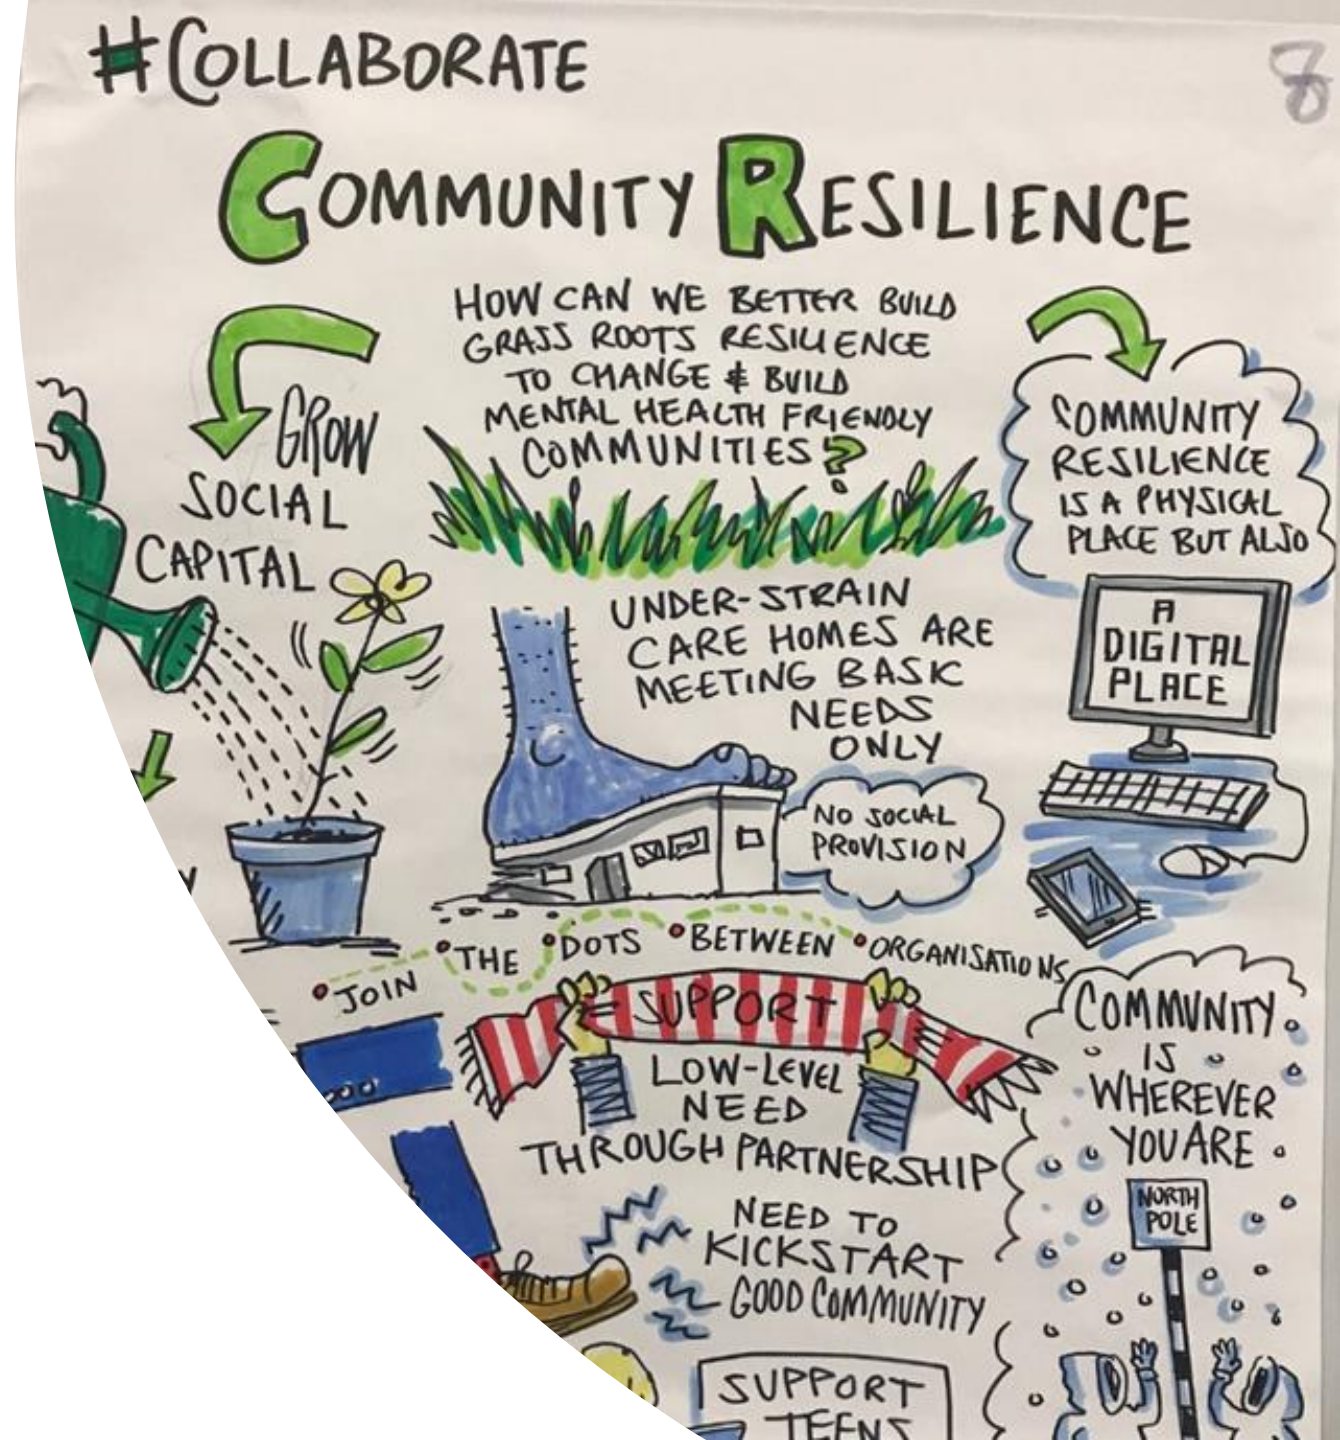 #COLLABORATE
8
COMMUNITY RESILIENCE
HOW CAN WE BETTER BUILD
GRASS ROOTS RESILIENCE
TO CHANGE & BUILD
MENTAL HEALTH FRIENDLY
COMMUNITIES?
GROW
SOCIAL
CAPITAL
COMMUNITY
RESILIENCE
IS A PHYSICAL
PLACE BUT ALSO
A
DIGITAL
PLACE
UNDER-STRAIN
CARE HOMES ARE
MEETING BASIC
NEEDS
ONLY
NO SOCIAL
PROVISION
JOIN THE DOTS BETWEEN ORGANISATIONS
SUPPORT
LOW-LEVEL
NEED
THROUGH PARTNERSHIP
NEED TO
KICKSTART
GOOD COMMUNITY
SUPPORT
TEENS
COMMUNITY
IS
WHEREVER
YOU ARE
NORTH
POLE